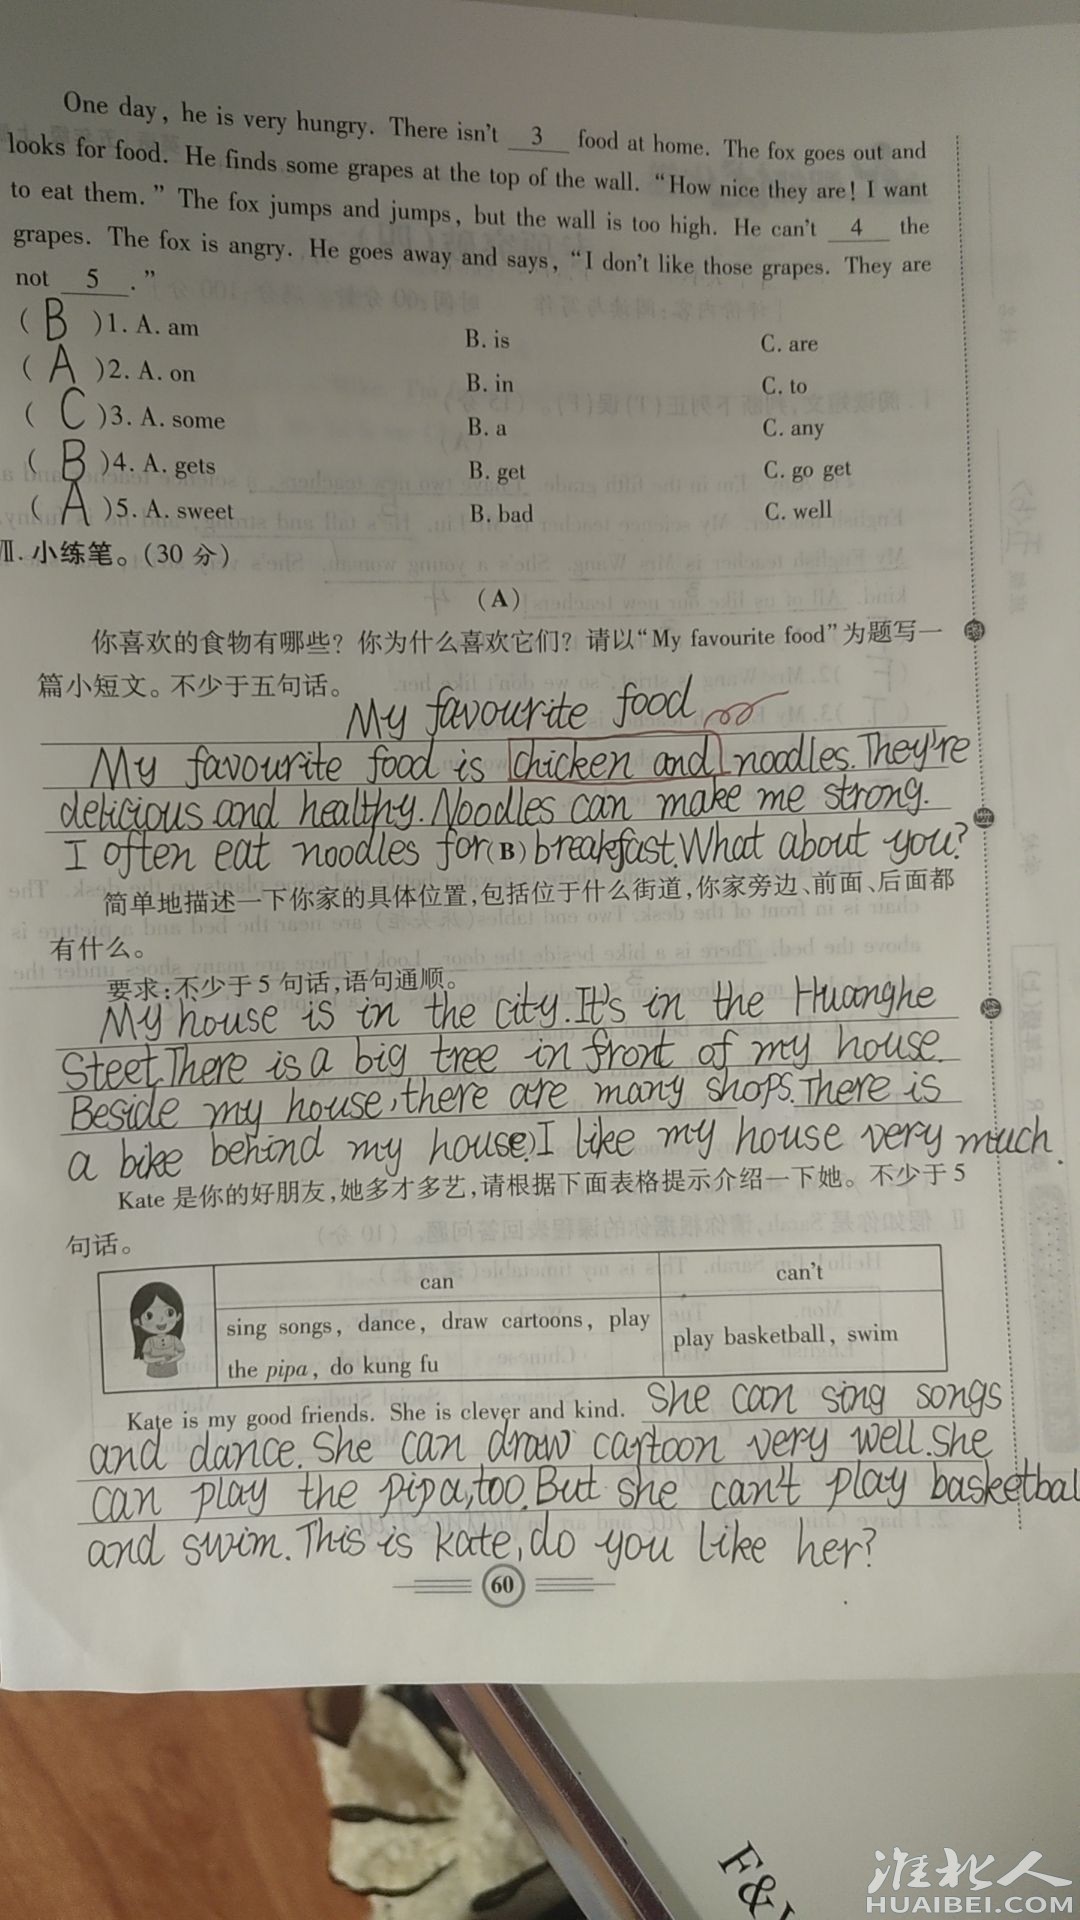 One day, he is very hungry. There isn't 3 food at home. The fox goes out and
looks for food. He finds some grapes at the top of the wall. “How nice they are! I want
to eat them.” The fox jumps and jumps, but the wall is too high. He can't 4 the
grapes. The fox is angry. He goes away and says, “I don't like those grapes. They are
not 5 .”
( B )1. A. am B. is C. are
( A )2. A. on B. in C. to
( C )3. A. some B. a C. any
( B )4. A. gets B. get C. go get
( A )5. A. sweet B. bad C. well
Ⅷ. 小练笔。(30 分)
(A)
你喜欢的食物有哪些？你为什么喜欢它们？请以“My favourite food”为题写一
篇小短文。不少于五句话。
My favourite food
My favourite food is chicken and noodles. They're
delicious and healthy. Noodles can make me strong.
I often eat noodles for breakfast. What about you?
(B)
简单地描述一下你家的具体位置,包括位于什么街道,你家旁边、前面、后面都
有什么。
要求:不少于 5 句话,语句通顺。
My house is in the city. It's in the Huanghe
Steet. There is a big tree in front of my house.
Beside my house, there are many shops. There is
a bike behind my house. I like my house very much.
Kate 是你的好朋友,她多才多艺,请根据下面表格提示介绍一下她。不少于 5
句话。
can can't
sing songs, dance, draw cartoons, play
the pipa, do kung fu
play basketball, swim
Kate is my good friends. She is clever and kind. She can sing songs
and dance. She can draw cartoon very well. She
can play the pipa, too. But she can't play basketbal
and swim. This is Kate, do you like her?
60
F&
淮北人
HUAIBEI.COM